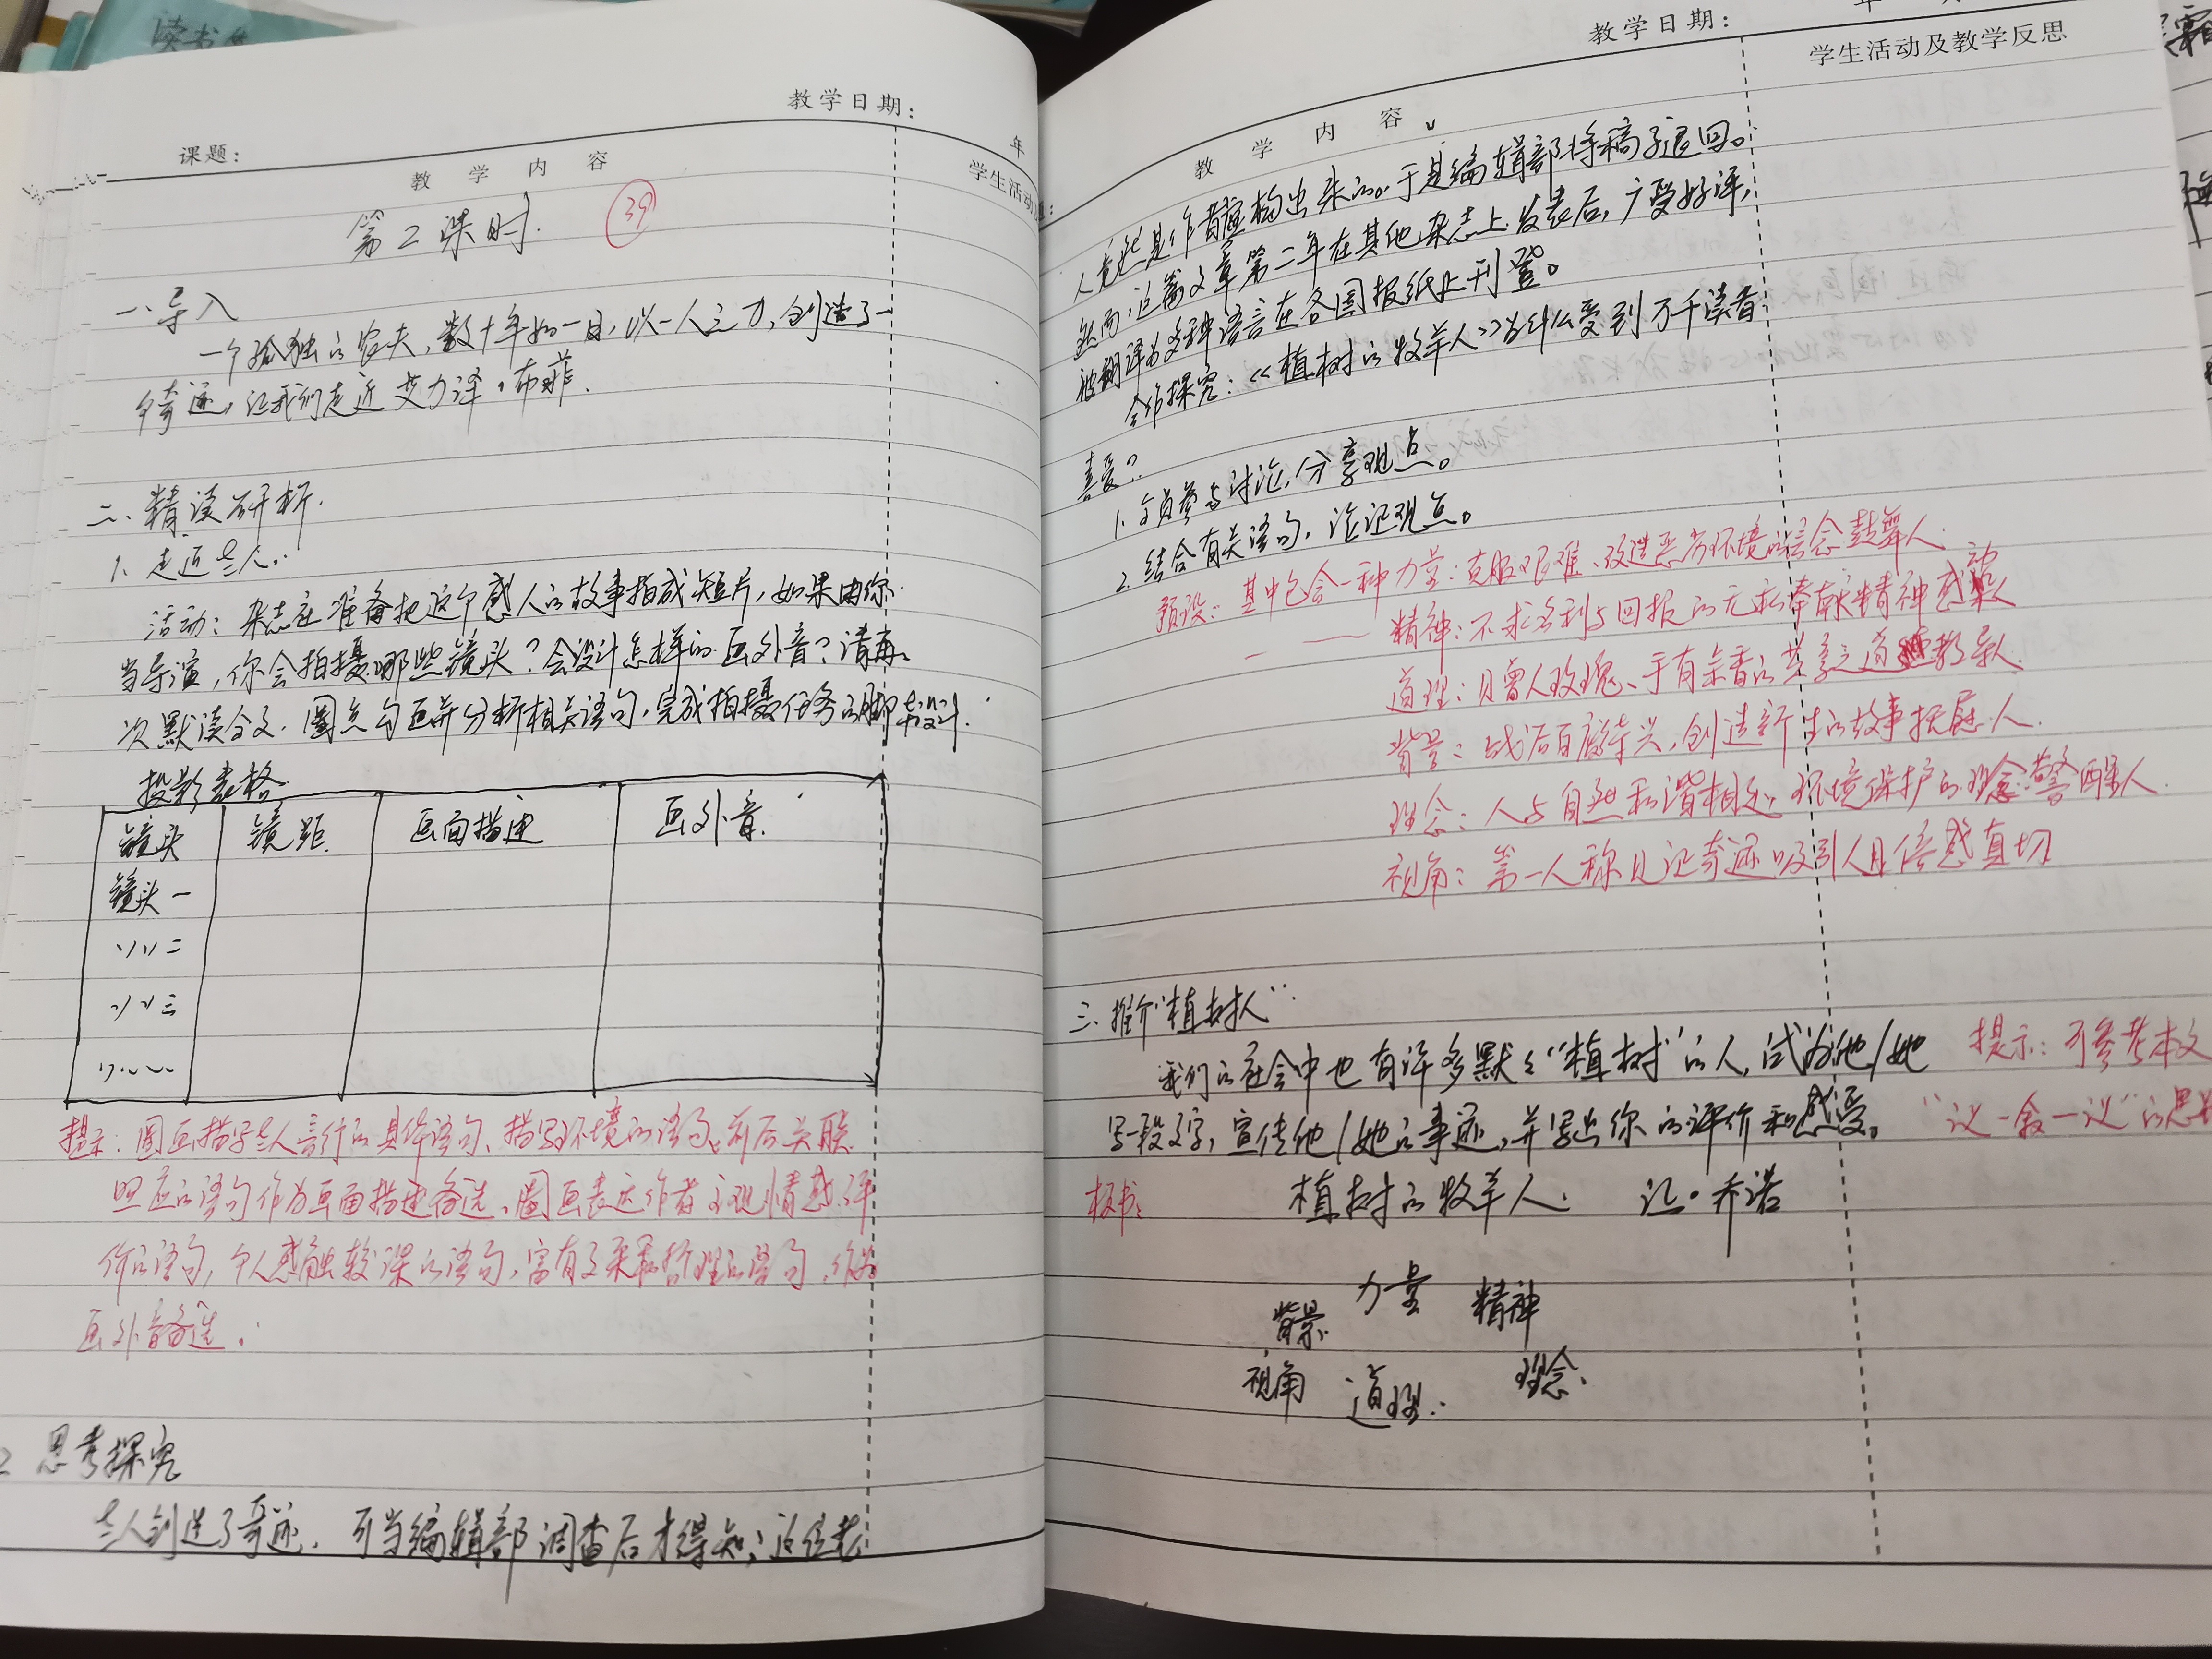 读书
教学日期：
年
课题：
教 学 内 容
学生活动
第2课时.
39
一、导入
一个孤独的农夫，数十年如一日，以一人之力，创造了一
个奇迹，让我们走近艾力泽·布菲.
二、精读研析.
1、走近老人.
活动：杂志社准备把这个感人的故事拍成短片，如果由你
当导演，你会拍摄哪些镜头？会设计怎样的画外音？请再
次默读全文，圈点勾画并分析相关语句，完成拍摄任务的脚本设计.
投影表格
镜头 镜距 画面描述 画外音.
镜头一
〃〃二
〃〃三
〃……
提示：圈画描写老人言行的具体语句、描写环境的语句，前后关联
照应的语句作为画面描述备选，圈画表达作者主观情感、评
价的语句，个人感触较深的语句，富有文采和哲理的语句，作为
画外音备选。
2 思考探究
老人创造了奇迹，可当编辑部调查后才得知，这位老
教学日期：
年 月
教 学 内 容
学生活动及教学反思
人竟然是作者虚构出来的。于是编辑部将稿子退回。
然而，这篇文章第二年在其他杂志上发表后，广受好评，
被翻译为多种语言在各国报纸上刊登。
合作探究：《植树的牧羊人》为什么受到万千读者
喜爱？
1、全员参与讨论，分享观点。
2、结合有关语句，论证观点。
预设：其中包含一种力量：克服艰难、改造恶劣环境的信念鼓舞人
— 精神：不求名利与回报的无私奉献精神感染人
道理：赠人玫瑰、手有余香的共享之道教导人.
背景：战后百废待兴，创造新生的故事抚慰人.
理念：人与自然和谐相处，环境保护的理念警醒人.
视角：第一人称见证奇迹吸引人且倍感真切
三、推介“植树人”
我们的社会中也有许多默默“植树”的人，试为他/她
写一段文字，宣传他/她的事迹，并写出你的评价和感受。
提示：可参考本文
“议一叙一议”的思
板书：
植树的牧羊人. 让·乔诺
力量 精神
背景
视角 道理. 理念